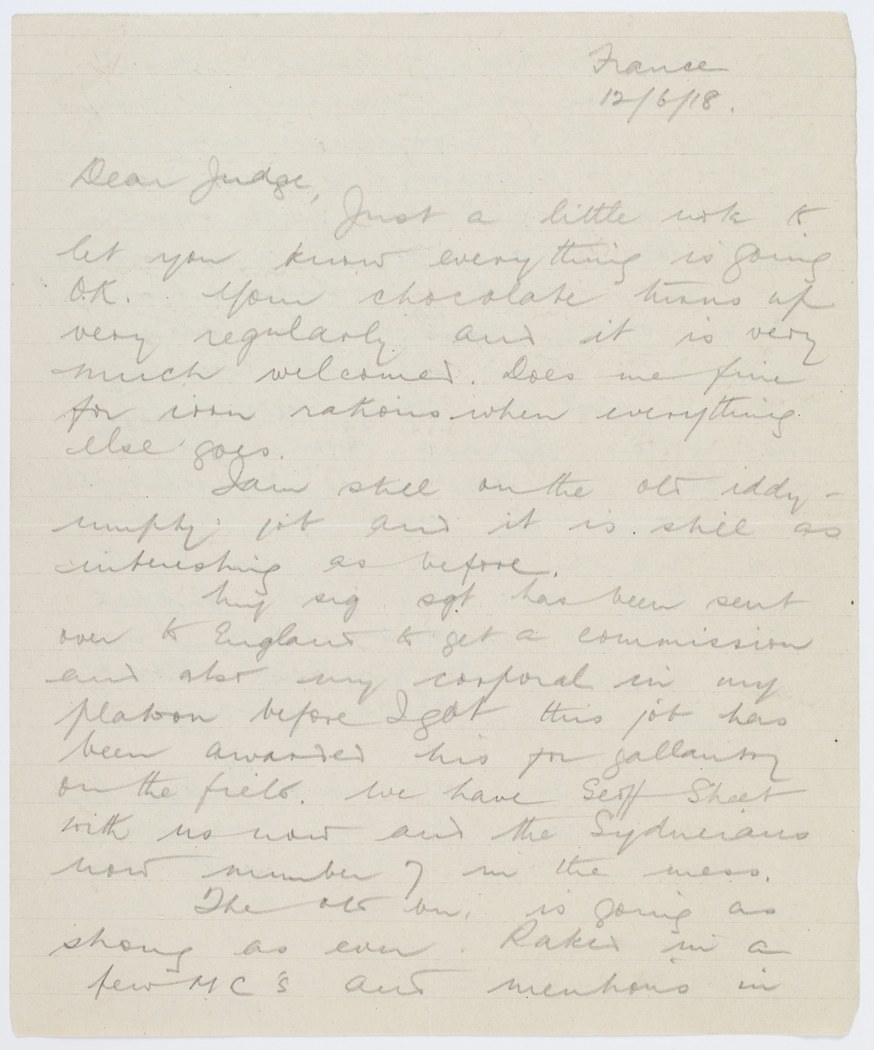 France
12/6/18.
Dear Judge,
Just a little note to
let you know everything is going
O.K. Your chocolate turns up
very regularly and it is very
much welcomed. Does me fine
for iron rations when everything
else goes.
I am still on the old iddy-
umpty job and it is still as
interesting as before.
My sig sgt has been sent
over to England to get a commission
and also my corporal in my
platoon before I got this job has
been awarded his for gallantry
on the field. We have Geoff Street
with us now and the Sydneians
now number 7 in the mess.
The old bn. is going as
strong as ever. Raked in a
few MC's and mentions in